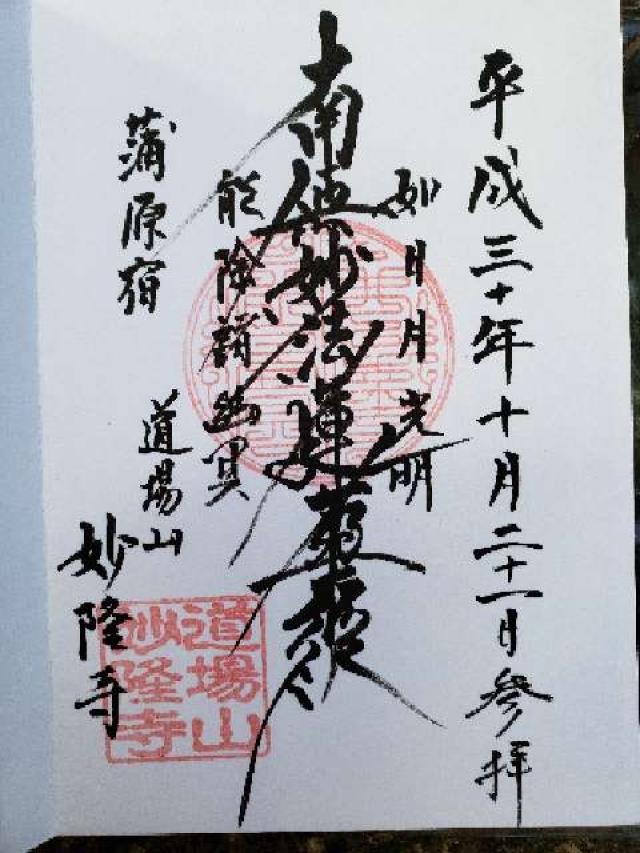 平成三十年十月二十一日参拝
如日月光明
南無妙法蓮華経
能除諸幽冥
蒲原宿
道場山
妙隆寺
道場山
妙隆寺